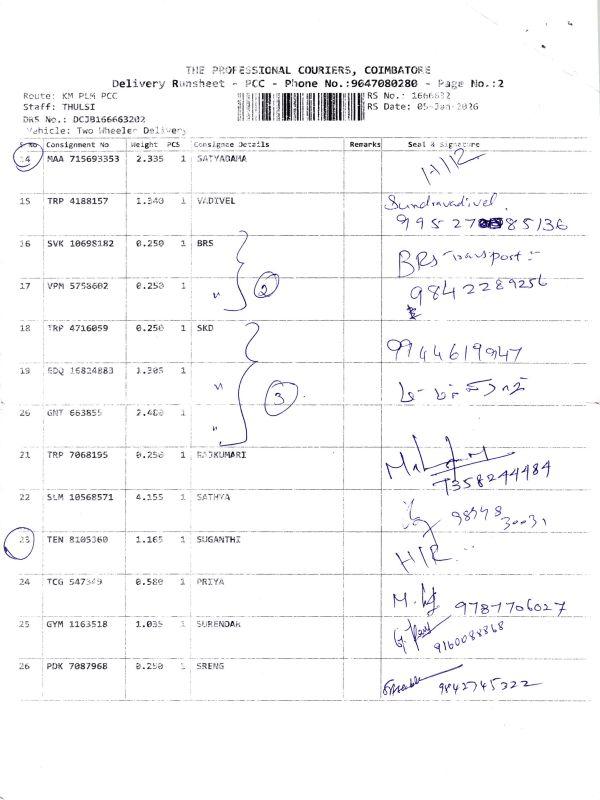 THE PROFESSIONAL COURIERS, COIMBATORE
Delivery Runsheet - PCC - Phone No.:9047080280 - Page No.:2
Route: KM PLM PCC
RS No.: 1666632
Staff: THULSI
RS Date: 05-Jan-2026
DRS No.: DCJB166663202
Vehicle: Two Wheeler Delivery
S No Consignment No Weight PCS Consignee Details Remarks Seal & Signature
14 MAA 715693353 2.335 1 SATYABAMA
15 TRP 4188157 1.340 1 VADIVEL Sundravadivel.
99527 85136
16 SVK 10698182 0.250 1 BRS BRS Transport
17 VPM 5758602 0.250 1 " 2 9842289256
18 TRP 4716059 0.250 1 SKD 9944619947
19 EDQ 16824883 1.305 1 "
20 GNT 663855 2.480 1 " 3
21 TRP 7068195 0.250 1 RAJKUMARI 7358244484
22 SLM 10568571 4.155 1 SATHYA 98948 30031
23 TEN 8105360 1.165 1 SUGANTHI
24 TCG 547349 0.580 1 PRIYA 9787706027
25 GYM 1163518 1.035 1 SURENDAR 9160088868
26 PDK 7087968 0.250 1 SRENG 9842745322